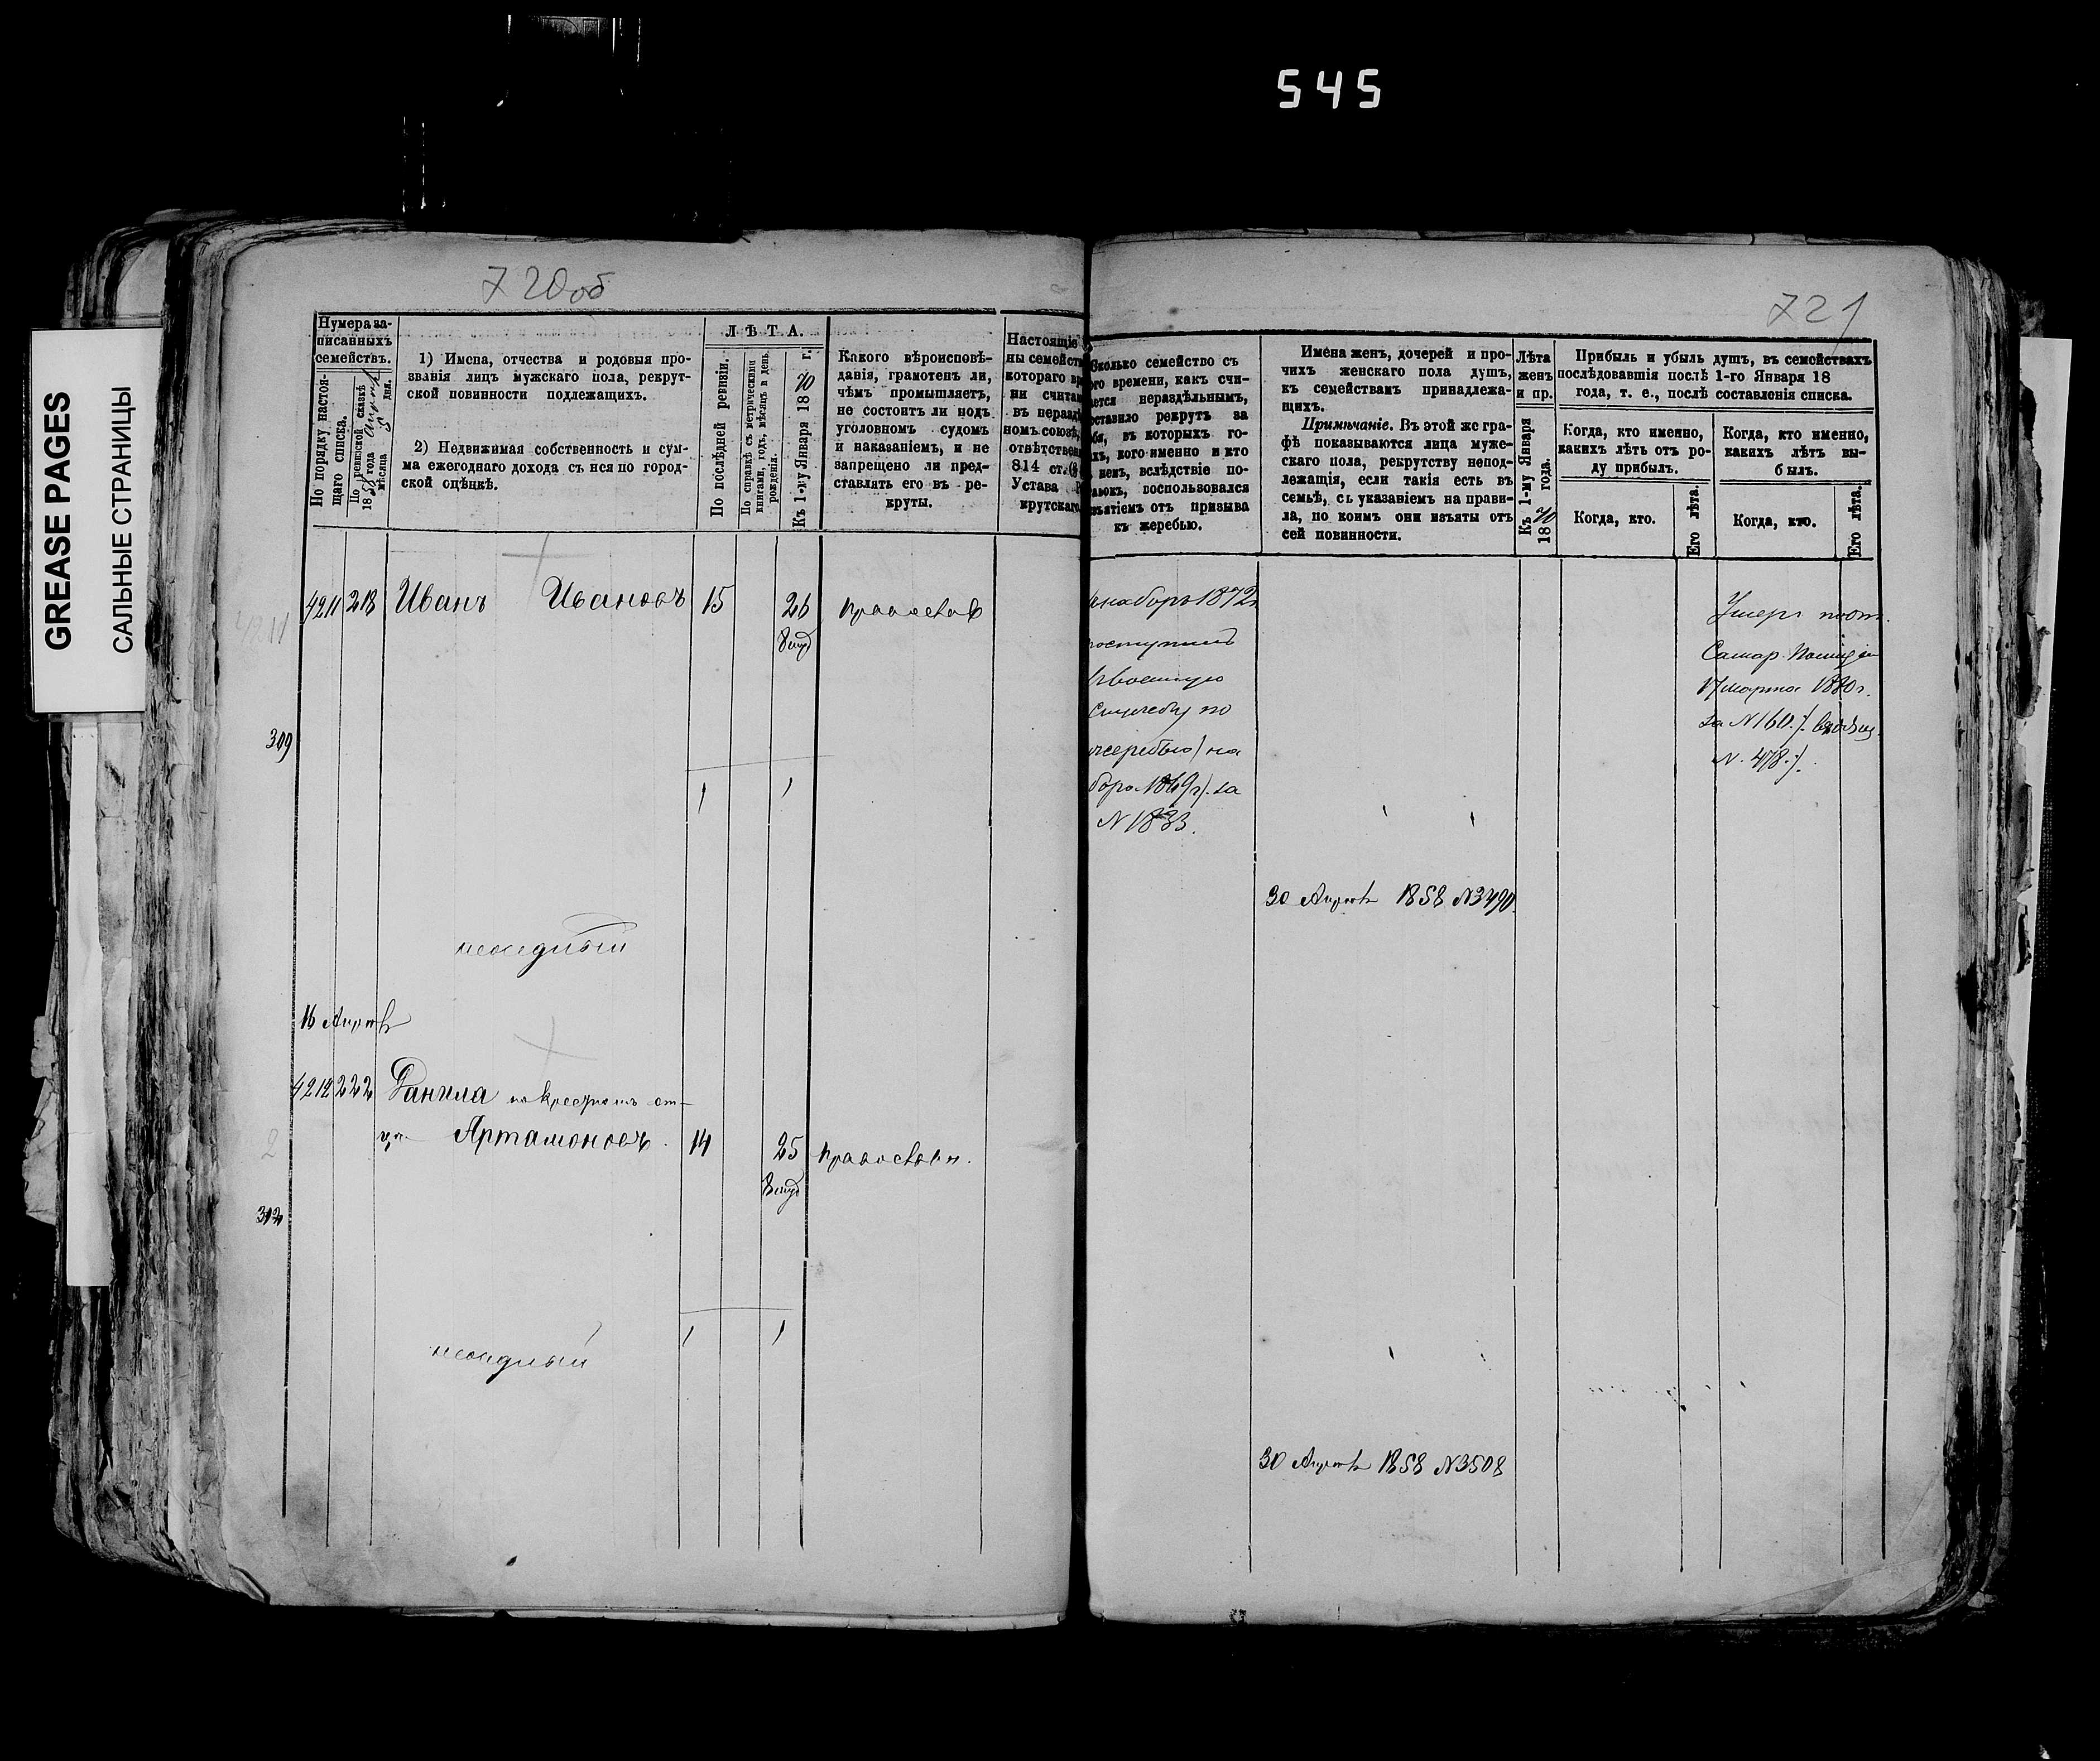 545
GREASE PAGES
САЛЬНЫЕ СТРАНИЦЫ
720об
721
Нумера за-
писанныхъ
семействъ.
По порядку настоя-
щаго списка.
По ревизской сказкѣ
1858 года
мѣсяца дня.
1) Имена, отчества и родовыя про-
званія лицъ мужскаго пола, рекрут-
ской повинности подлежащихъ.
2) Недвижимая собственность и сум-
ма ежегоднаго дохода съ нея по город-
ской оцѣнкѣ.
ЛѢТА.
По послѣдней ревизіи.
По справкѣ съ метрическими
книгами, годъ, мѣсяцъ и день
рожденія.
Къ 1-му Января 1870 г.
Какого вѣроисповѣ-
данія, грамотенъ ли,
чѣмъ промышляетъ,
не состоитъ ли подъ
уголовномъ судомъ
и наказаніемъ, и не
запрещено ли пред-
ставлять его въ ре-
круты.
Настоящіе
ны семейств
котораго вр
ни счита
въ неразд
номъ союзѣ,
отвѣтствен
814 ст.
Устава Р
крутскаго
Сколько семейство съ
ого времени, какъ счи-
ается нераздѣльнымъ,
оставило рекрутъ за
бя, въ которыхъ го-
хъ, кого именно и кто
нихъ, вслѣдствіе по-
авокъ, воспользовался
изъятіемъ отъ призыва
къ жеребью.
Имена женъ, дочерей и про-
чихъ женскаго пола душъ,
къ семействамъ принадлежа-
щихъ.
Примѣчаніе. Въ этой же гра-
фѣ показываются лица муже-
скаго пола, рекрутству непод-
лежащія, если такія есть въ
семьѣ, съ указаніемъ на прави-
ла, по коимъ они изъяты отъ
сей повинности.
Лѣта
женъ
и пр.
Къ 1-му Января
1870 года.
Прибыль и убыль душъ, въ семействахъ
послѣдовавшія послѣ 1-го Января 18
года, т. е., послѣ составленія списка.
Когда, кто именно,
какихъ лѣтъ отъ ро-
ду прибылъ.
Когда, кто именно,
какихъ лѣтъ вы-
былъ.
Когда, кто.
Его лѣта.
Когда, кто.
Его лѣта.
4211 218 Иванъ Ивановъ 15 26 православ
4211
309
1 1
наборъ 1872
поступилъ
въ военную
Службу по
жеребью / на
бора 1869 г /. за
N 1833.
Умеръ
Самар. Полиціи
17 марта 1880 г.
за N 160. /. входящ.
N. 478. /.
30 Апрѣля 1858 N3490.
16 Апрѣля
4212 222 Данила по крестномъ от-
цѣ Артамоновъ. 14 25 православн.
2
312
1 1
30 Апрѣля 1858 N3508